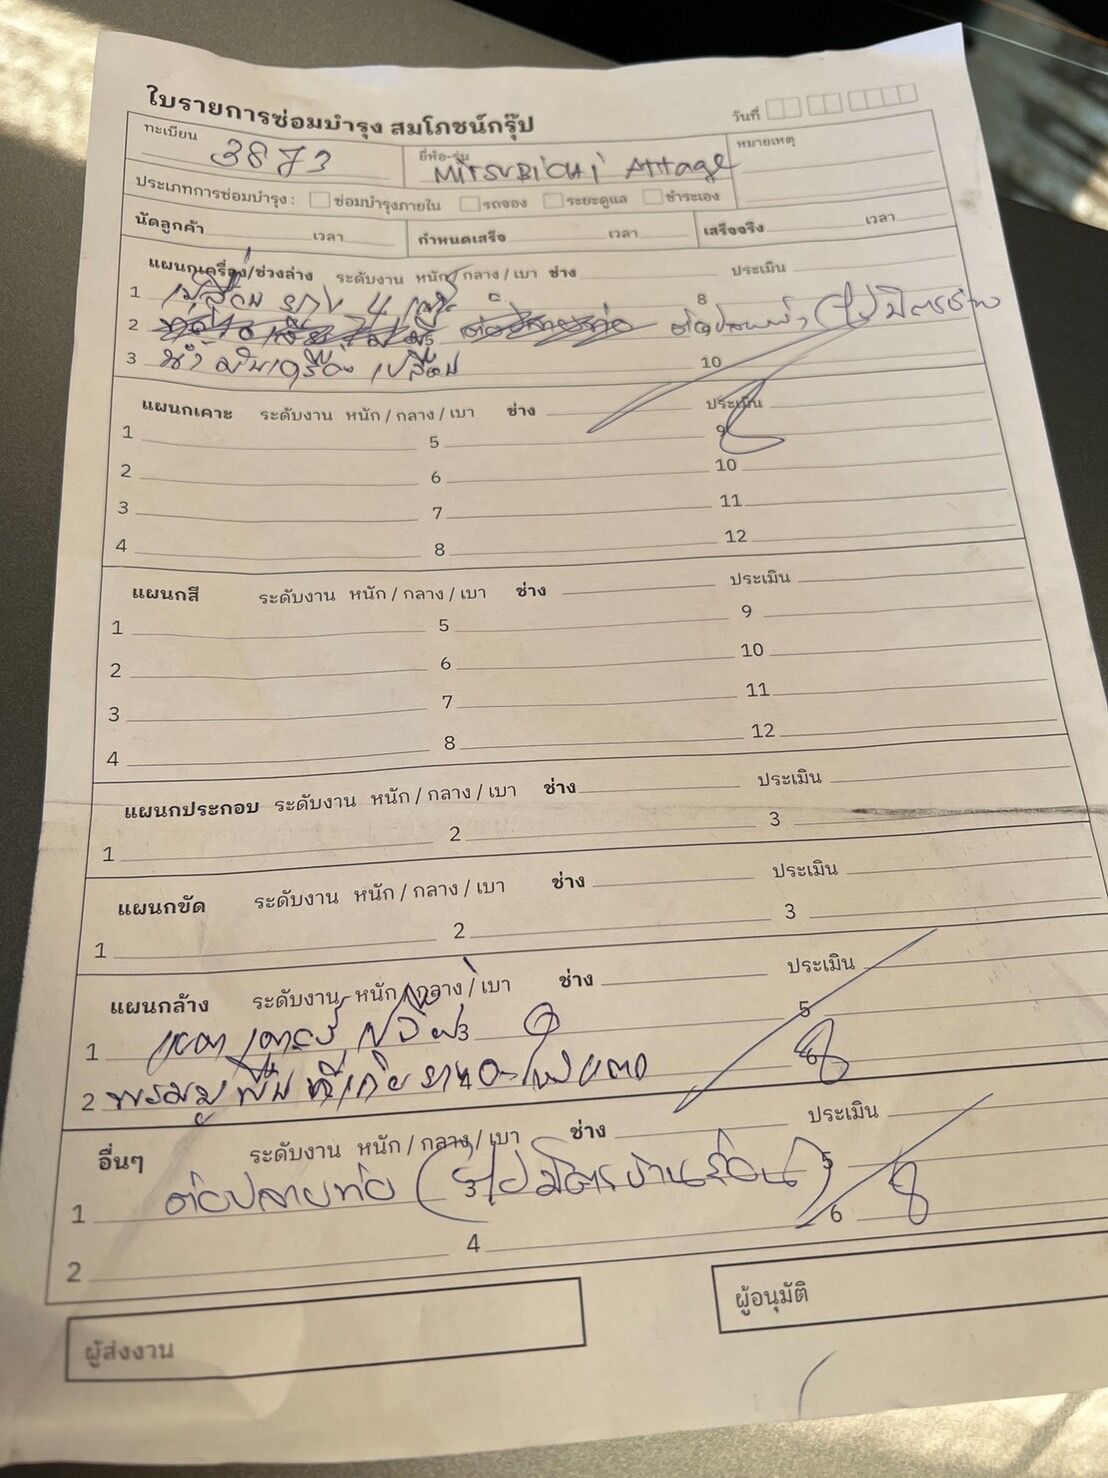 ใบรายการซ่อมบำรุง สมโภชน์กรุ๊ป
วันที่
ทะเบียน 3873 ยี่ห้อ-รุ่น MITSUBICHI Attage หมายเหตุ
ประเภทการซ่อมบำรุง : ซ่อมบำรุงภายใน รถจอง ระยะดูแล ชำระเอง
นัดลูกค้า เวลา กำหนดเสร็จ เวลา เสร็จจริง เวลา
แผนกเครื่อง/ช่วงล่าง ระดับงาน หนัก / กลาง / เบา ช่าง ประเมิน
1 เปลี่ยน ยาง 4 เส้น 8
2
3 น้ำมันเครื่อง เปลี่ยน 10
แผนกเคาะ ระดับงาน หนัก / กลาง / เบา ช่าง ประเมิน
1 5 9
2 6 10
3 7 11
4 8 12
แผนกสี ระดับงาน หนัก / กลาง / เบา ช่าง ประเมิน
1 5 9
2 6 10
3 7 11
4 8 12
แผนกประกอบ ระดับงาน หนัก / กลาง / เบา ช่าง ประเมิน
1 2 3
แผนกขัด ระดับงาน หนัก / กลาง / เบา ช่าง ประเมิน
1 2 3
แผนกล้าง ระดับงาน หนัก / กลาง / เบา ช่าง ประเมิน
1 3 5
2 พรมปู พื้น
อื่นๆ ระดับงาน หนัก / กลาง / เบา ช่าง ประเมิน
1 ต่อปลายท่อ 3 5
2 4 6
ผู้ส่งงาน ผู้อนุมัติ